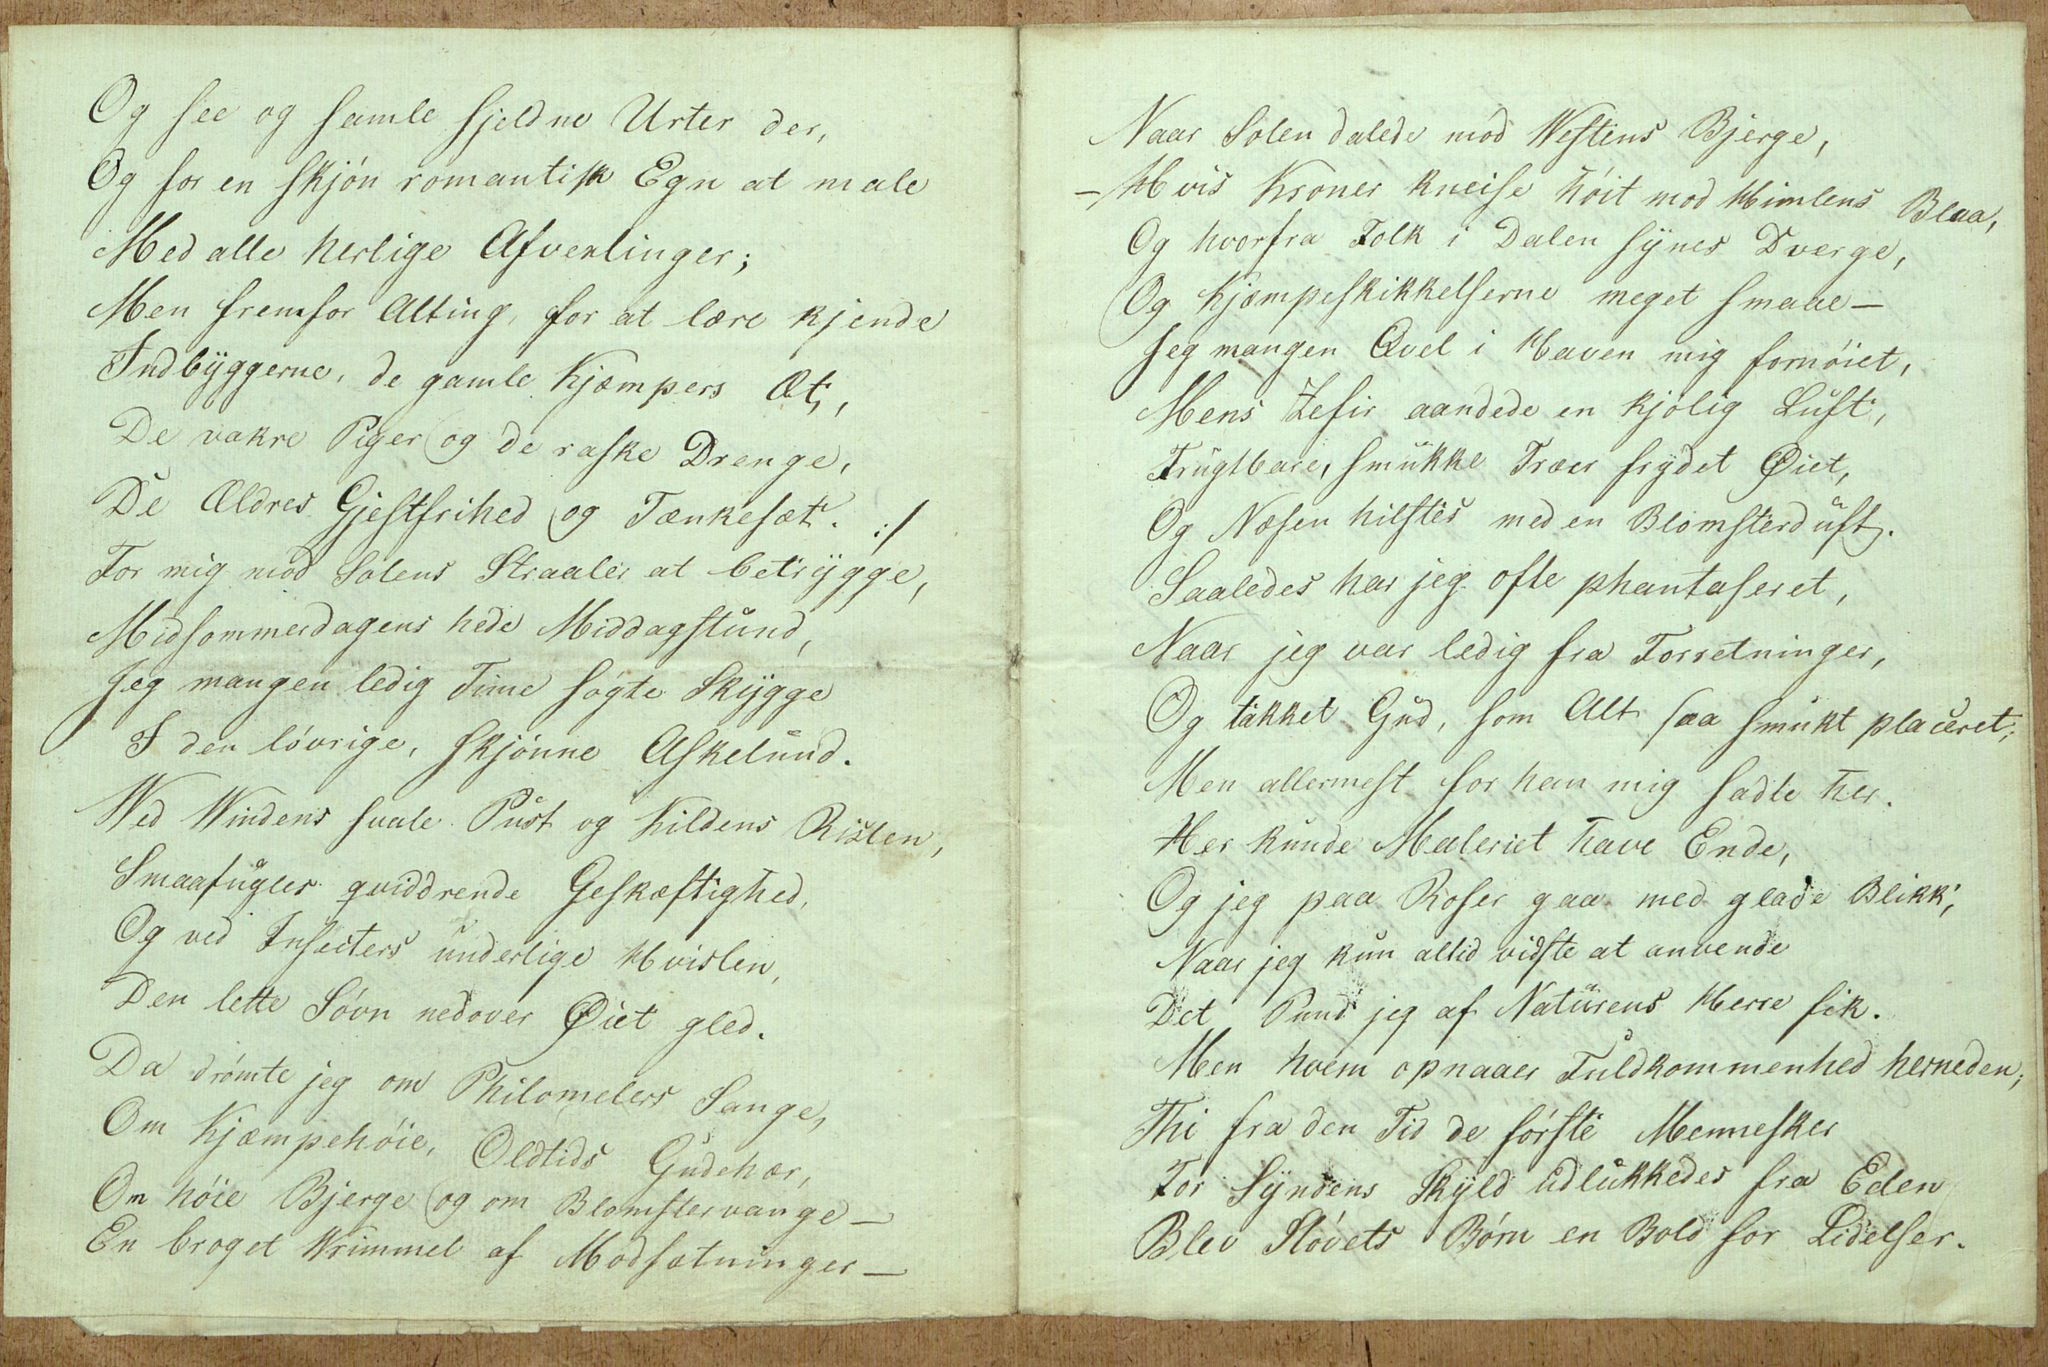 Og see og samle sjeldne Urter der,
Og for en skjön romantisk Egn at male
Med alle herlige Afvexlinger;
Men fremfor Alting, for at lære kjende
Indbÿggerne, de gamle Kjæmpers Æt,
De vakre Piger og de raske Drenge,
De Ældres Gjestfrihed og Tænkesæt. :/
For mig mod Solens Straaler at betrÿgge,
Midsommerdagens hede Middagstŭnd,
Jeg mangen ledig Time søgte Skÿgge
I den lövrige, skjönne Askelŭnd.
Ved Vindens svale Pŭst og Kildens Rislen,
Smaafŭgles qviddrende Geskæftighed,
Og ved Insecters ŭnderlige Hvislen,
Den lette Sövn nedover Öiet gled.
Da drömte jeg om Philomelers Sange,
Om Kjæmpehöie, Oldtids Gŭdehær,
Om höie Bjerge og om Blomstervange —
En broget Vrimmel af Modsætninger —
Naar Solen dalede mod Vestens Bjerge,
– Hvis Kroner kneise höit mod Himlens Blaa,
Og hvorfra Folk i Dalen sÿnes Dverge,
Og Kjæmpeskikkelserne meget smaae —
Jeg mangen Qvel i Haven mig fornöiet,
Mens Zefir aandede en kjölig Lŭft,
Frŭgtbare, smŭkke Træer frÿdet Öiet,
Og Næsen hilstes med en Blomsterdŭft.
Saaledes har jeg ofte phantaseret,
Naar jeg var ledig fra Forretninger,
Og takket Gŭd, som Alt saa smŭkt placeret;
Men allermest for han mig sadte her.
Her kŭnde Maleriet have Ende,
Og jeg paa Roser gaa med glade Blikk;
Naar jeg kŭn altid vidste at anvende
Det Pund jeg af Natŭrens Herre fik.
Men hvem opnaaer Fŭldkommenhed herneden;
Thi fra den Tid de förste Mennesker
For Sÿndens Skÿld ŭdlŭkkedes fra Eden
Blev Stövets Börn en Bold for Lidelser.